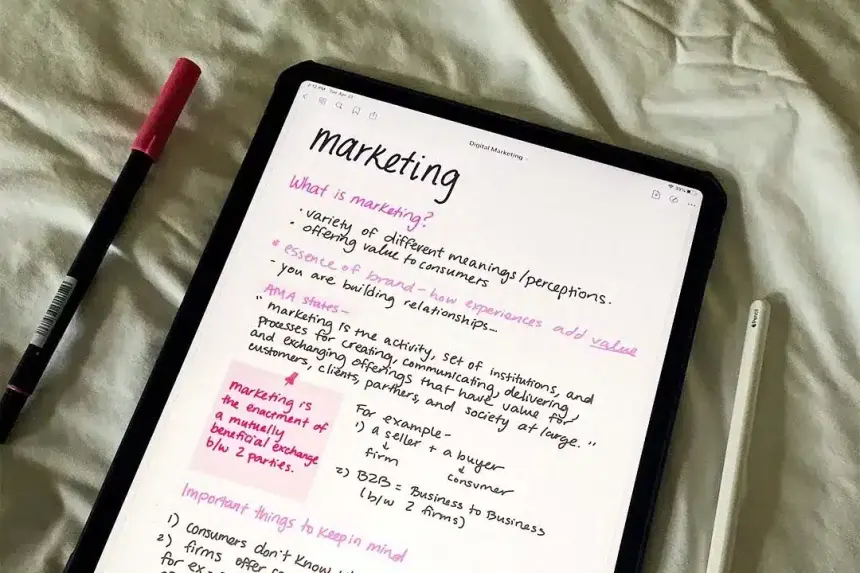 Digital Marketing
99%
marketing
What is marketing?
· variety of different meanings/perceptions.
· offering value to consumers
* essence of brand - how experiences add value
- you are building relationships...
AMA states -
"marketing is the activity, set of institutions, and
processes for creating, communicating, delivering,
and exchanging offerings that have value for
customers, clients, partners, and society at large."
marketing is
the enactment of
a mutually
beneficial exchange
b/w 2 parties.
For example -
1) a seller + a buyer
↓ ↓
firm consumer
2) B2B = Business to Business
(b/w 2 firms)
Important things to keep in mind
1) consumers don't know
2) firms offer
for